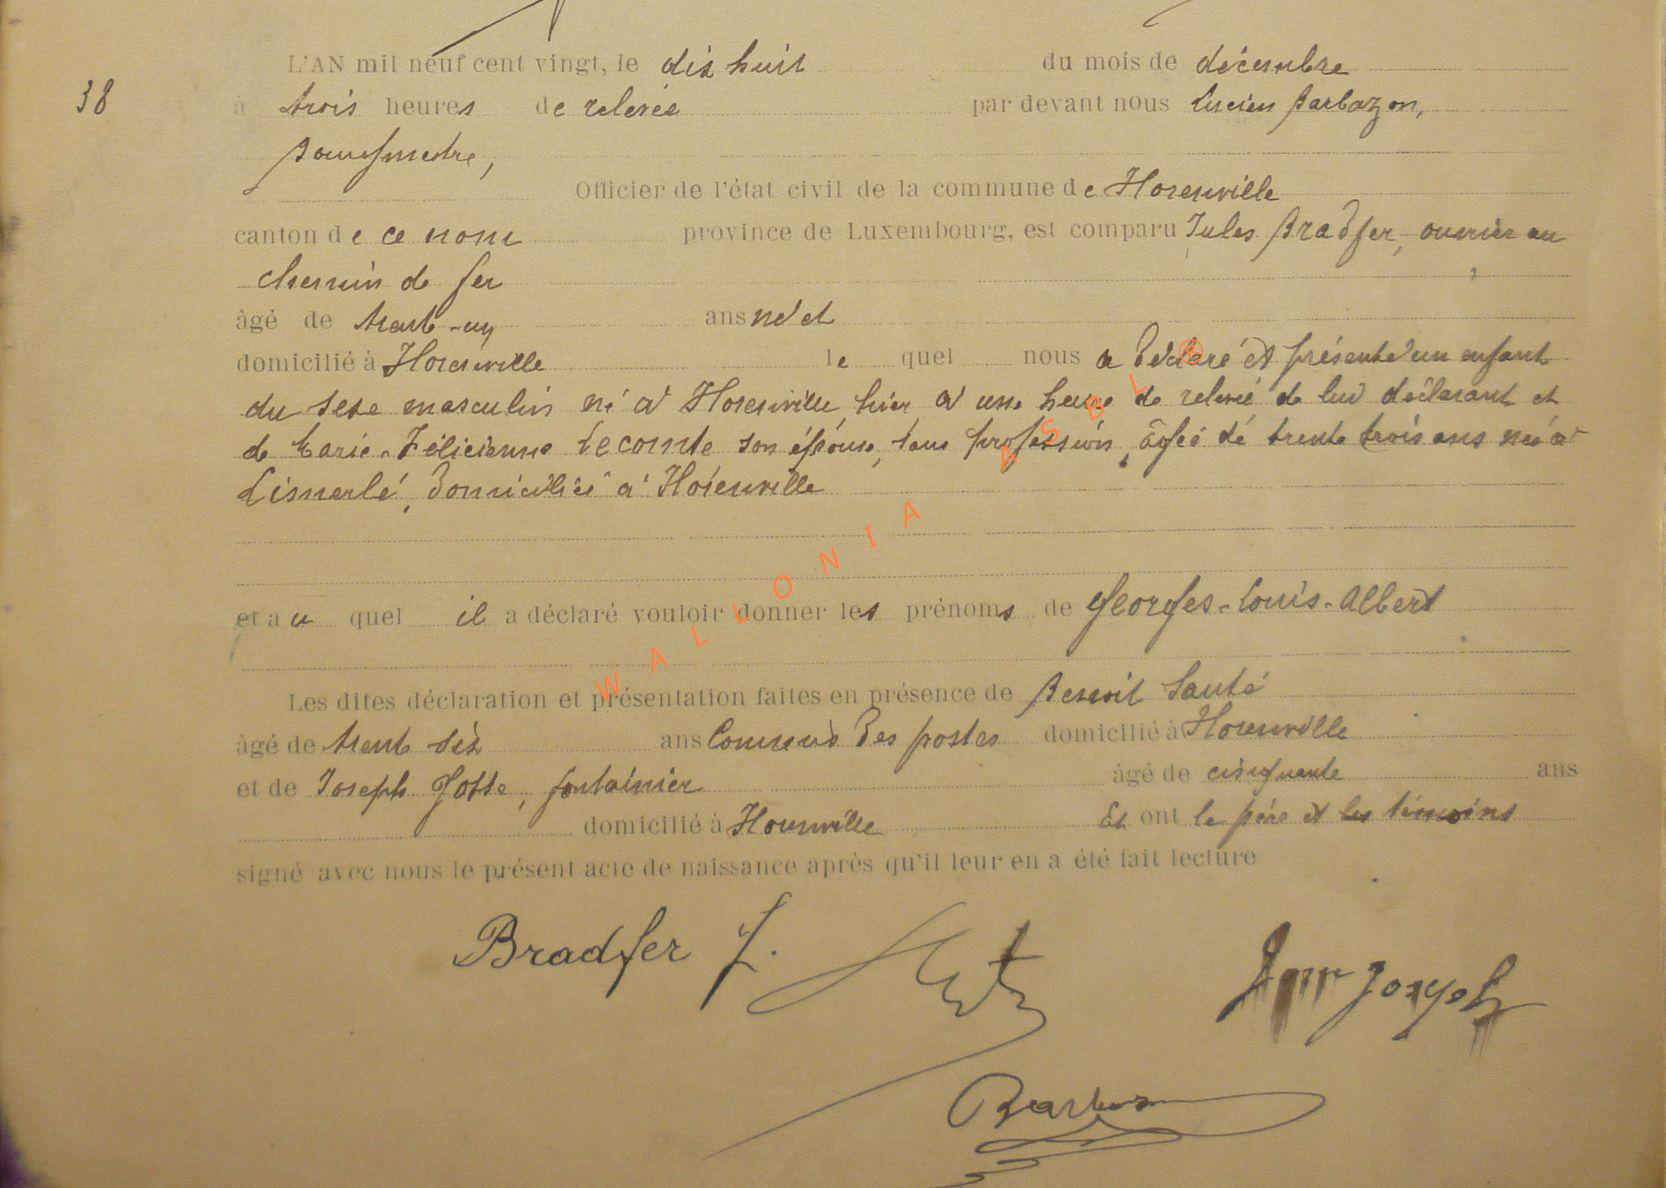 L'AN mil neuf cent vingt, le dix huit du mois de décembre
38
à trois heures de relevée par devant nous Lucien Barbazon,
Bourgmestre,
Officier de l'état civil de la commune de Hotenville
canton de ce nom province de Luxembourg, est comparu Jules Bradfer, ouvrier au
chemin de fer
âgé de trente-un ans né et
domicilié à le quel nous a déclaré et présenté un enfant
du sexe masculin né à hier à une heure de relevée de lui déclarant et
de Marie-Félicienne Lecomte son épouse, sans profession, âgée de trente trois ans née à
domiciliée à
et au quel il a déclaré vouloir donner les prénoms de Georges-Louis-Albert
Les dites déclaration et présentation faites en présence de Benoit Santé
âgé de trente six ans Commis des postes domicilié à
et de Joseph Gosse, fontainier âgé de cinquante ans
domicilié à Et ont le père et les témoins
signé avec nous le présent acte de naissance après qu'il leur en a été fait lecture
Bradfer J.
Joseph
WALLONIA ASBL ®